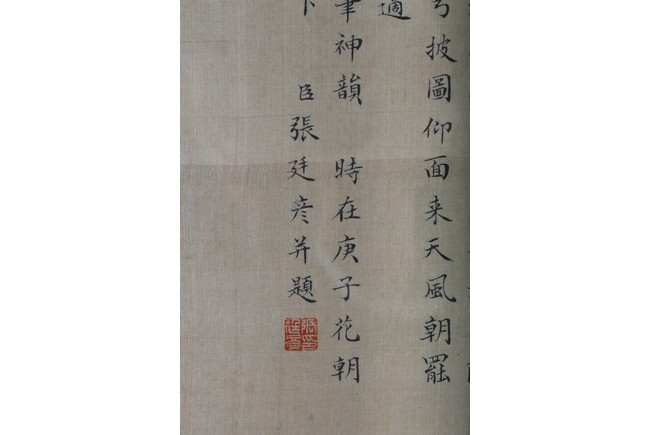 披圖仰面来天風朝罷
適
神韻 時在庚子花朝
臣張廷彦并題